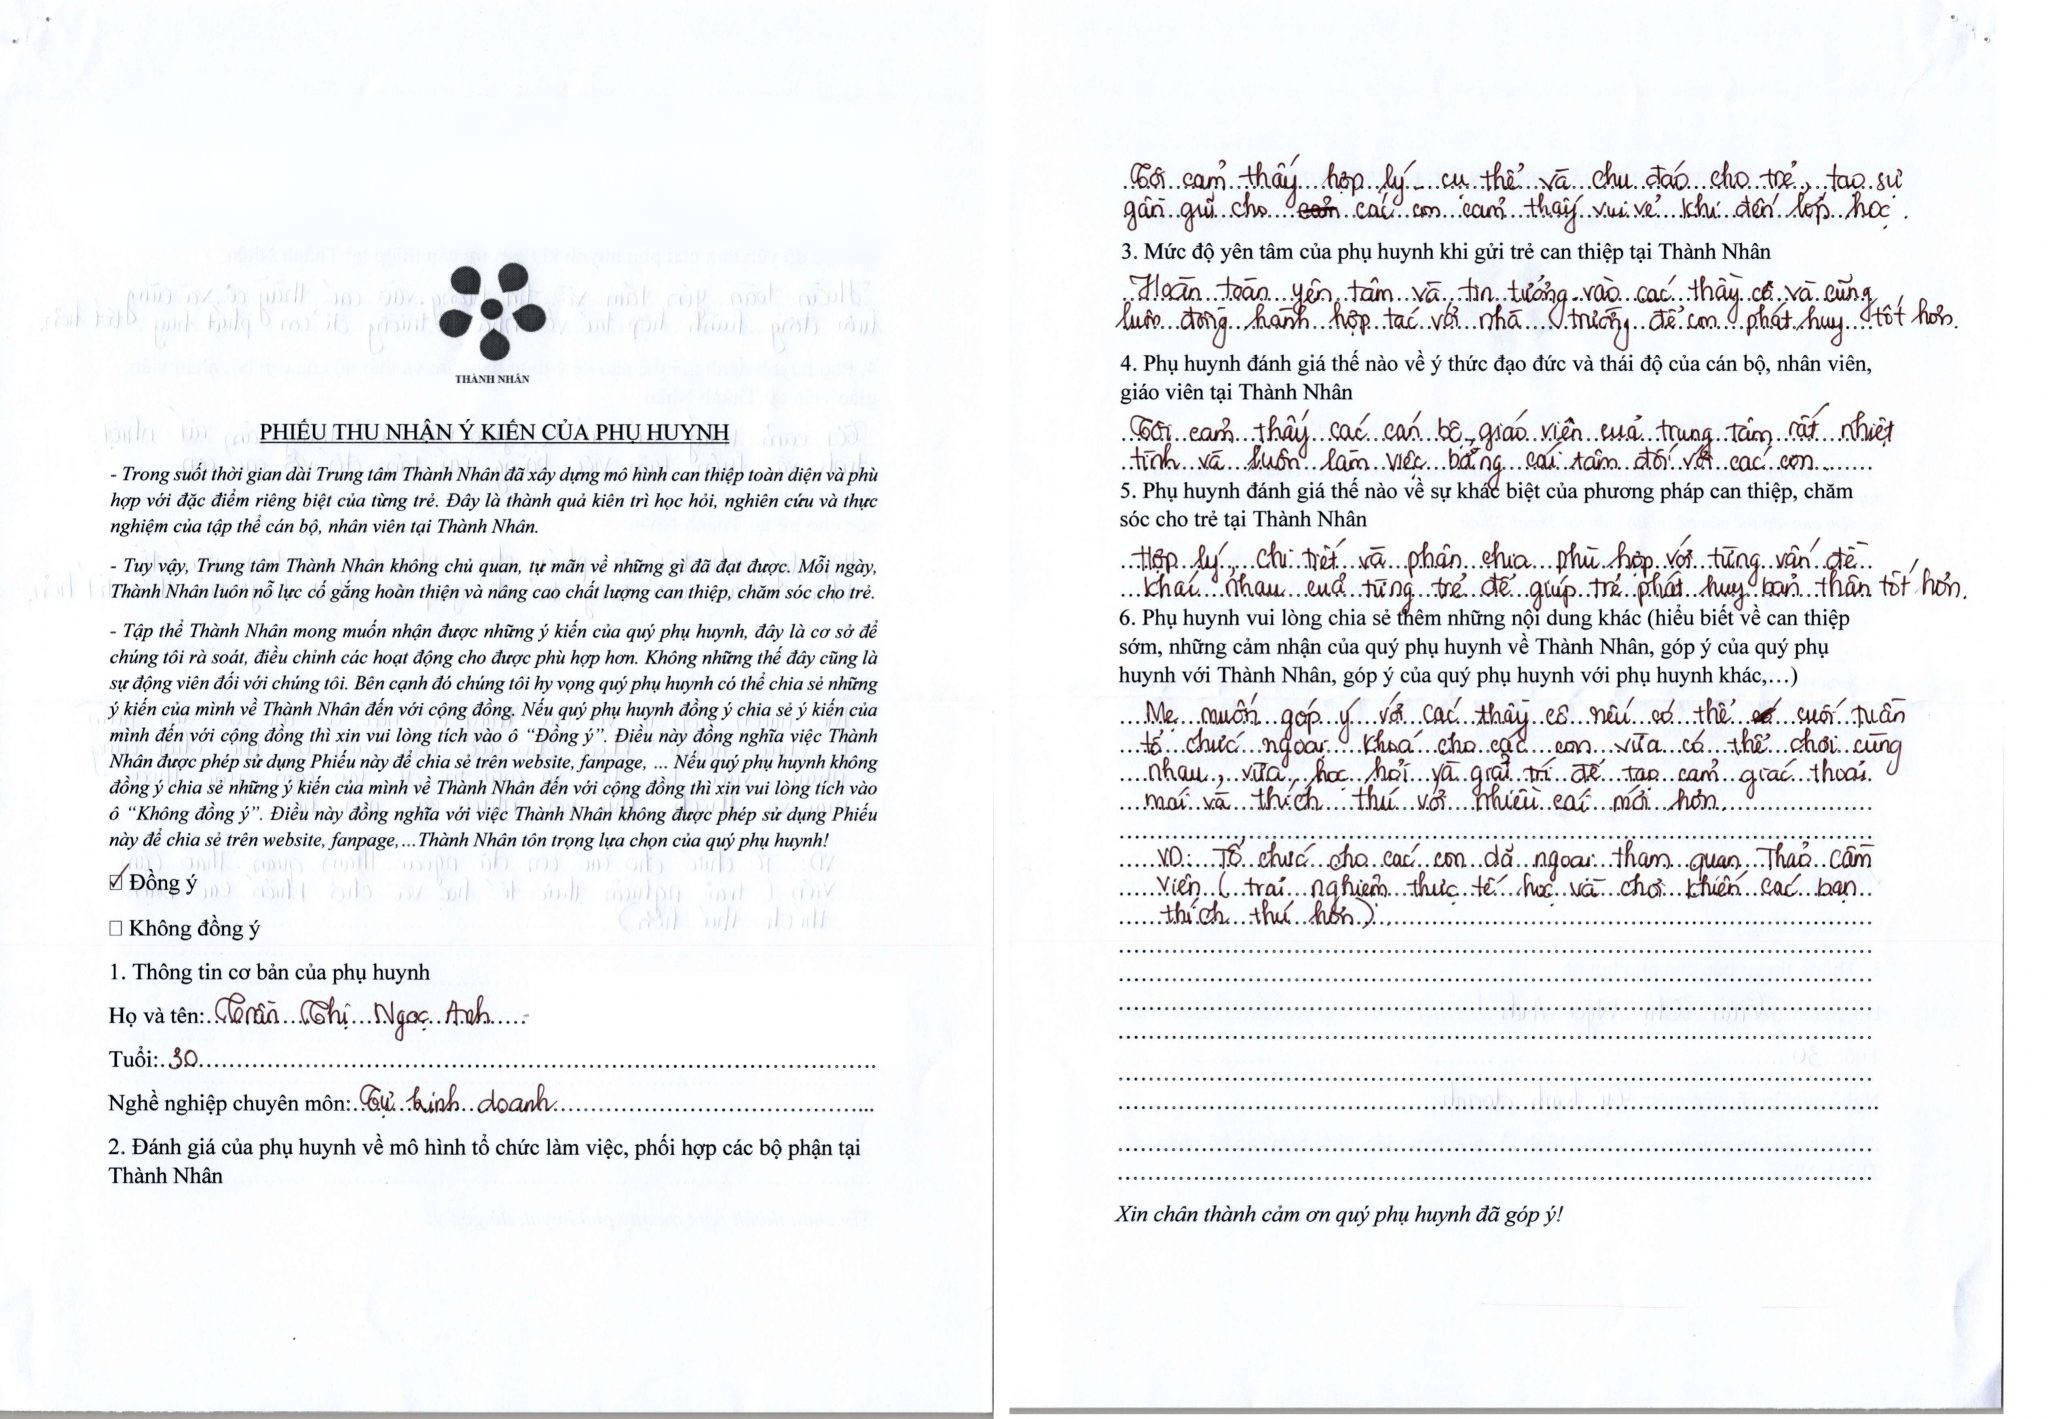 THÀNH NHÂN
PHIẾU THU NHẬN Ý KIẾN CỦA PHỤ HUYNH
- Trong suốt thời gian dài Trung tâm Thành Nhân đã xây dựng mô hình can thiệp toàn diện và phù
hợp với đặc điểm riêng biệt của từng trẻ. Đây là thành quả kiên trì học hỏi, nghiên cứu và thực
nghiệm của tập thể cán bộ, nhân viên tại Thành Nhân.
- Tuy vậy, Trung tâm Thành Nhân không chủ quan, tự mãn về những gì đã đạt được. Mỗi ngày,
Thành Nhân luôn nỗ lực cố gắng hoàn thiện và nâng cao chất lượng can thiệp, chăm sóc cho trẻ.
- Tập thể Thành Nhân mong muốn nhận được những ý kiến của quý phụ huynh, đây là cơ sở để
chúng tôi rà soát, điều chỉnh các hoạt động cho được phù hợp hơn. Không những thế đây cũng là
sự động viên đối với chúng tôi. Bên cạnh đó chúng tôi hy vọng quý phụ huynh có thể chia sẻ những
ý kiến của mình về Thành Nhân đến với cộng đồng. Nếu quý phụ huynh đồng ý chia sẻ ý kiến của
mình đến với cộng đồng thì xin vui lòng tích vào ô “Đồng ý”. Điều này đồng nghĩa việc Thành
Nhân được phép sử dụng Phiếu này để chia sẻ trên website, fanpage, ... Nếu quý phụ huynh không
đồng ý chia sẻ những ý kiến của mình về Thành Nhân đến với cộng đồng thì xin vui lòng tích vào
ô “Không đồng ý”. Điều này đồng nghĩa với việc Thành Nhân không được phép sử dụng Phiếu
này để chia sẻ trên website, fanpage,...Thành Nhân tôn trọng lựa chọn của quý phụ huynh!
☑ Đồng ý
☐ Không đồng ý
1. Thông tin cơ bản của phụ huynh
Họ và tên: Trần Thị Ngọc Anh
Tuổi: 30
Nghề nghiệp chuyên môn: Tự kinh doanh
2. Đánh giá của phụ huynh về mô hình tổ chức làm việc, phối hợp các bộ phận tại
Thành Nhân
Tôi cảm thấy hợp lý cụ thể và chu đáo cho trẻ, tạo sự
gần gũi cho các con cảm thấy vui vẻ khi đến lớp học.
3. Mức độ yên tâm của phụ huynh khi gửi trẻ can thiệp tại Thành Nhân
Hoàn toàn yên tâm và tin tưởng vào các thầy cô và cũng
luôn đồng hành hợp tác với nhà trường để con phát huy tốt hơn.
4. Phụ huynh đánh giá thế nào về ý thức đạo đức và thái độ của cán bộ, nhân viên,
giáo viên tại Thành Nhân
Tôi cảm thấy các cán bộ, giáo viên của trung tâm rất nhiệt
tình và luôn làm việc bằng cái tâm đối với các con
5. Phụ huynh đánh giá thế nào về sự khác biệt của phương pháp can thiệp, chăm
sóc cho trẻ tại Thành Nhân
Hợp lý, chi tiết và phân chia phù hợp với từng vấn đề
khác nhau của từng trẻ để giúp trẻ phát huy bản thân tốt hơn.
6. Phụ huynh vui lòng chia sẻ thêm những nội dung khác (hiểu biết về can thiệp
sớm, những cảm nhận của quý phụ huynh về Thành Nhân, góp ý của quý phụ
huynh với Thành Nhân, góp ý của quý phụ huynh với phụ huynh khác,…)
Mẹ muốn góp ý với các thầy cô nếu có thể cuối tuần
tổ chức ngoại khoá cho các con vừa có thể chơi cùng
nhau, vừa học hỏi và giải trí để tạo cảm giác thoải
mái và thích thú với nhiều cái mới hơn.
VD: Tổ chức cho các con dã ngoại tham quan Thảo Cầm
Viên (trải nghiệm thực tế học và chơi khiến các bạn
thích thú hơn)
Xin chân thành cảm ơn quý phụ huynh đã góp ý!